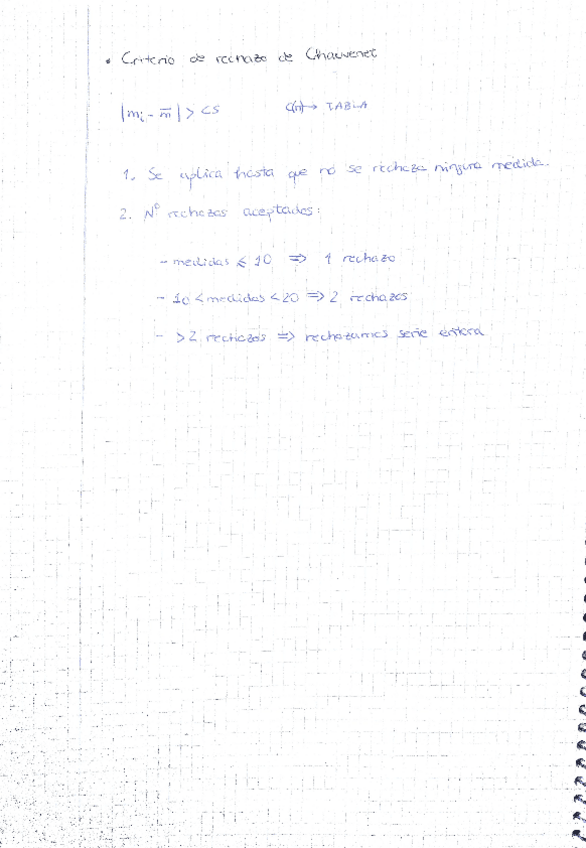 • Criterio de rechazo de Chauvenet
|mᵢ - m̅| > CS C(n) → TABLA
1. Se aplica hasta que no se rechaza ninguna medida.
2. Nº rechazos aceptados:
- medidas ≤ 10 ⇒ 1 rechazo
- 10 < medidas < 20 ⇒ 2 rechazos
- > 2 rechazos ⇒ rechazamos serie entera